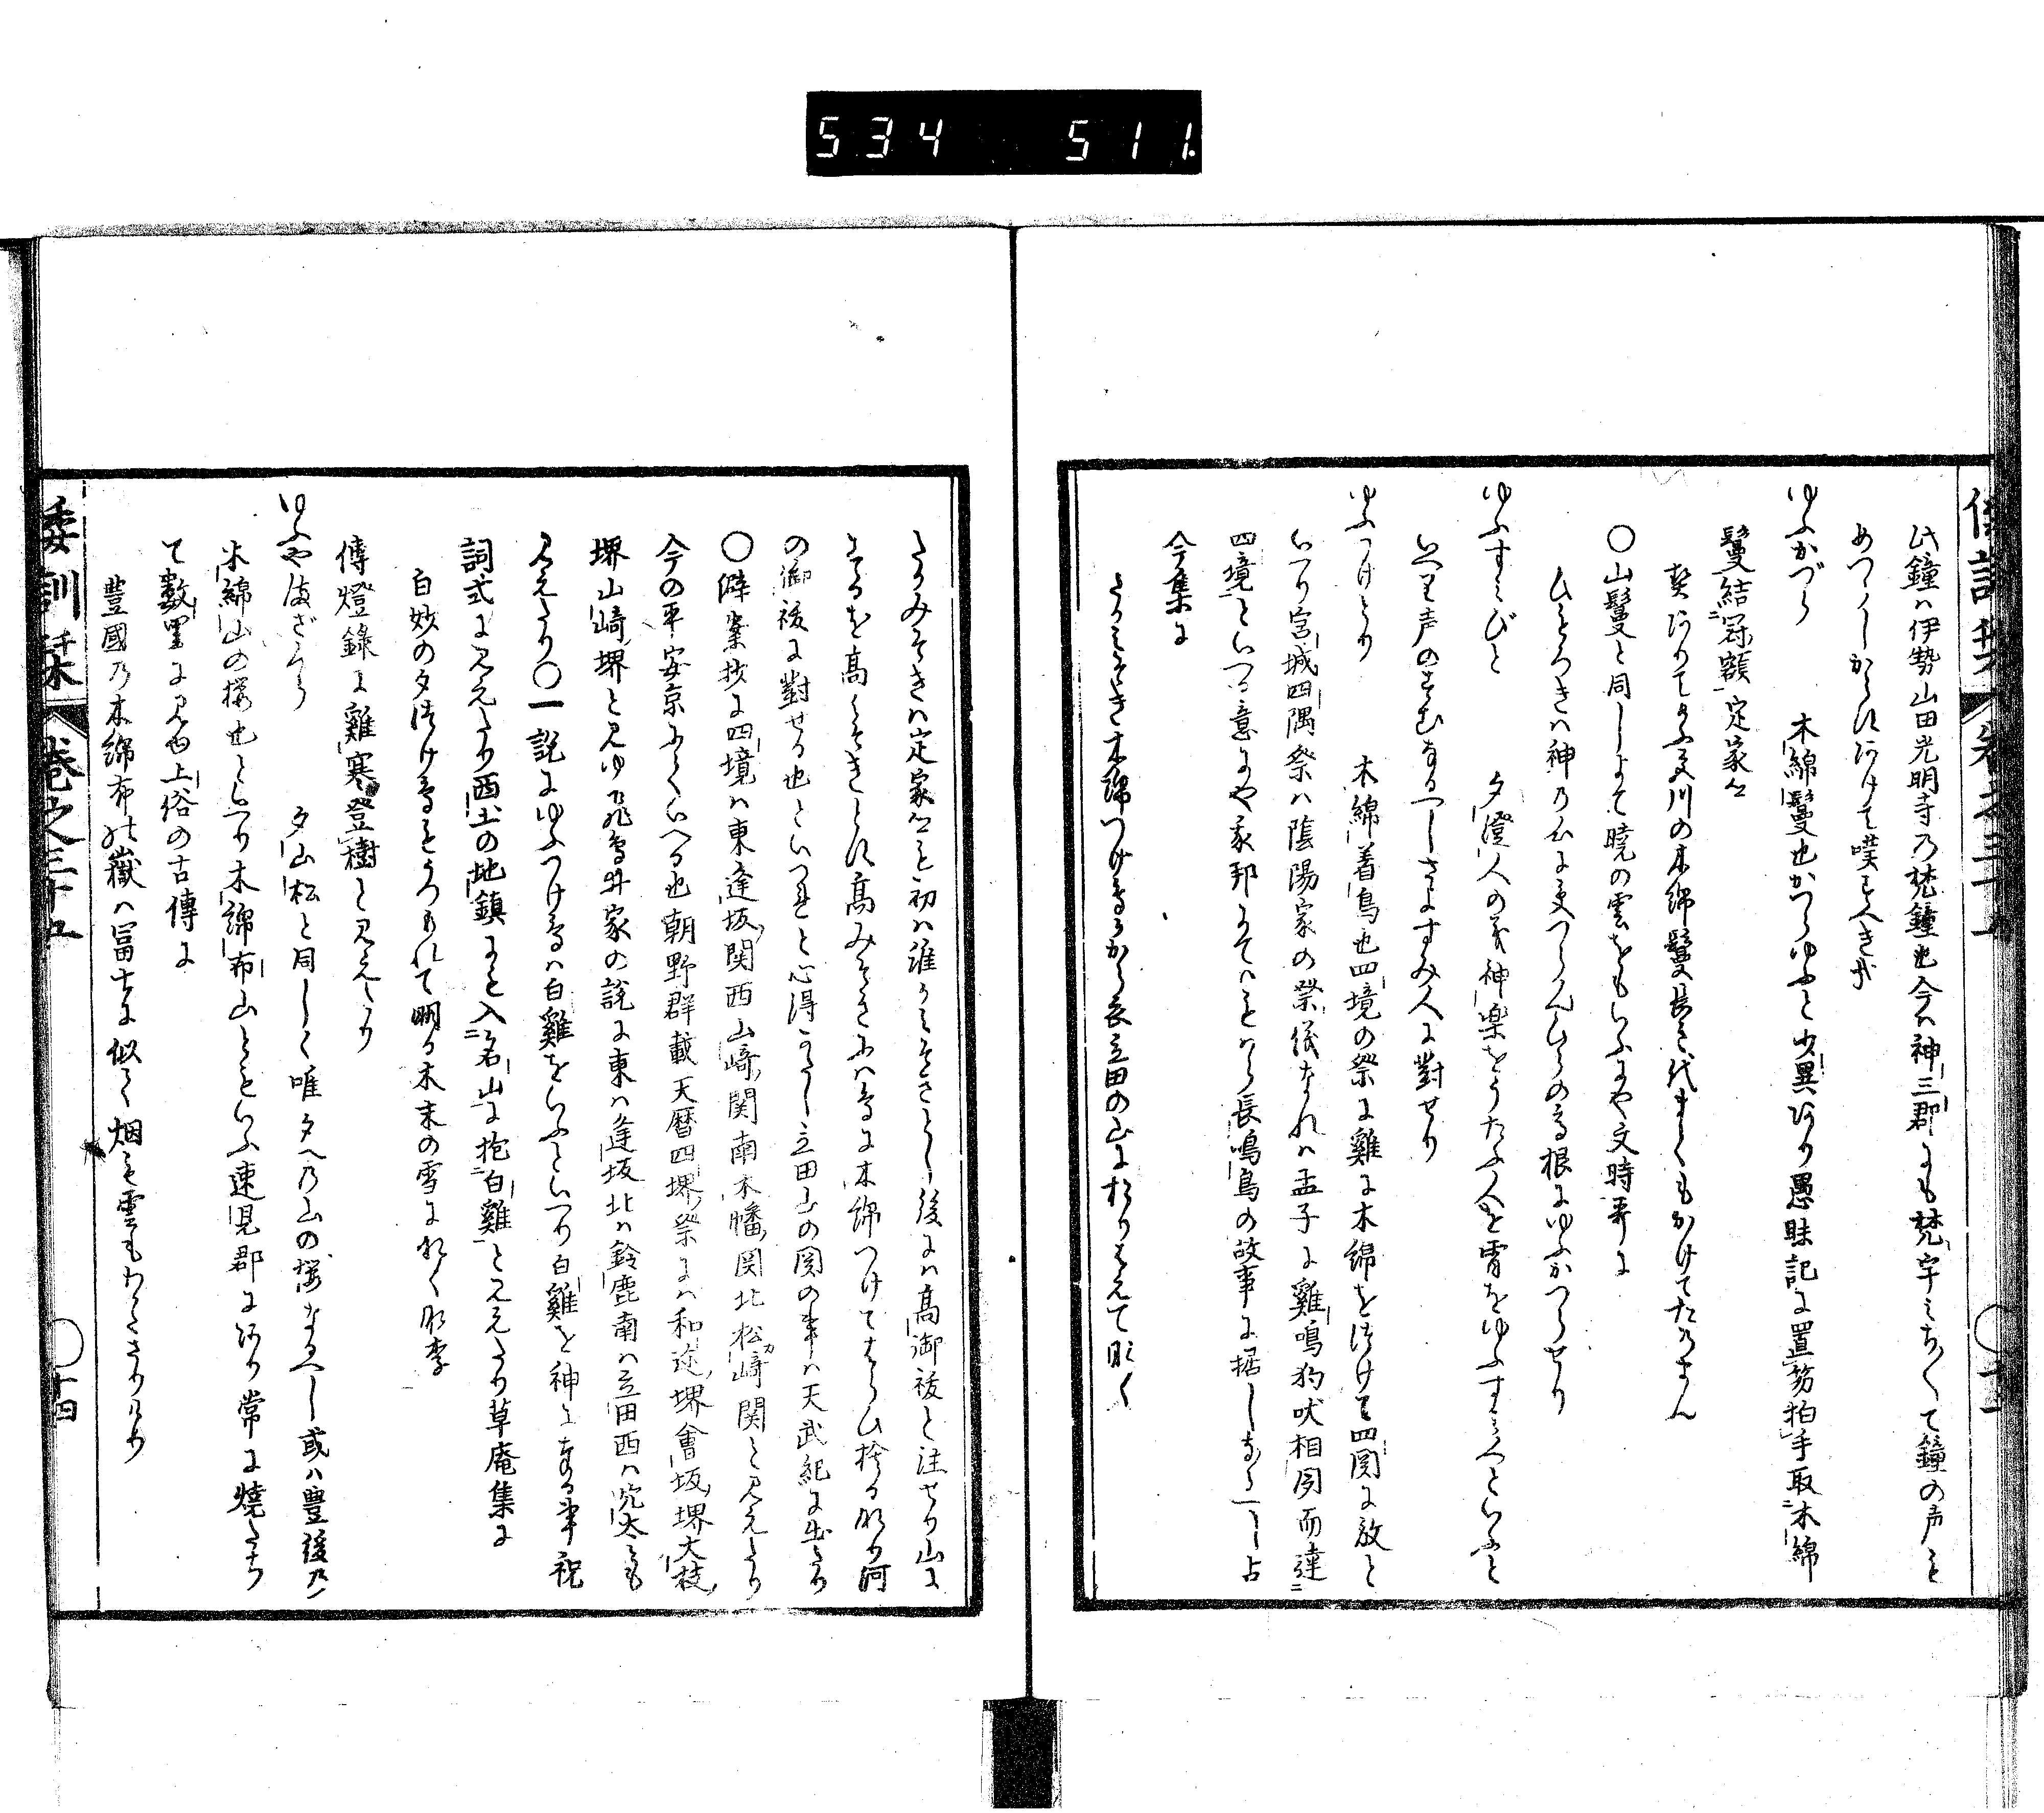 534 511.
此鐘ハ伊勢山田光明寺乃梵鐘也今ハ神三郡にも梵宇みち〳〵て鐘の声を
めつらしからすなりけるを嘆すへき哉
ゆふかづら 木綿鬘也かつらゆふと少異なり愚昧記に置笏拍手取木綿
鬘結冠額定家公
契ありてけふみや川の木綿鬘長き代まてもかけてたのまん
〇山鬘と同しよて暁の雲をもいふにや文時哥に
ひもろきは神の心にうけつらんひらの高根にゆふかつらせり
ゆふすみびと 夕澄人の義神楽をうたふ人を宵をゆふすみ人といふと
いへり声のすむなるへしさよすみ人に對せり
ゆふつけとり 木綿着鳥也四境の祭に雞に木綿を法けて四関に放と
いへり宮城四隅祭ハ陰陽家の祭儀なれハ孟子に雞鳴狗吠相聞而達
四境といへる意にや我邦にてハもとより長鳴鳥の故事に据しなるへし古
今集に
たかみそき木綿つけ鳥かから衣立田の山におりはへて鳴く
たかみそきハ定家公も初ハ誰みそきとし後にハ高御祓と注せり山に
てするを高みそきとす高みそきにハ鳥に木綿つけてはらひ捨るなり河
の御祓に對せる也といへると心得へし立田山の関の事ハ天武紀に出たり
〇僻案抄に四境ハ東逢坂関西山﨑関南木幡関北松﨑関と見えたり
今の平安京にていへる也朝野群載天暦四堺祭にハ和迩堺會坂堺大枝
堺山﨑堺と見ゆ飛鳥井家の説に東ハ逢坂北ハ鈴鹿南ハ立田西ハ穴太とも
見えたり〇一説にゆふつけ鳥ハ白雞をいふといへり白雞を神に奉る事祝
詞式に見えたり西土の地鎮にも入名山に抱白雞と見えたり草庵集に
白妙の夕法け鳥もうつもれて明る木末の雪になく也
傳燈錄に雞寒登樹と見えたり
ゆふやまざくら 夕山桜と同しく唯夕への山の桜なるへし或ハ豊後乃
木綿山の桜也といへり木綿布山ともいふ速見郡にあり常に燒たち
て數里に見ゆ土俗の古傳に
豊國乃木綿布の嶽ハ冨士に似て烟も雲もわかさりけり
倭訓栞 巻之三十五 〇十四